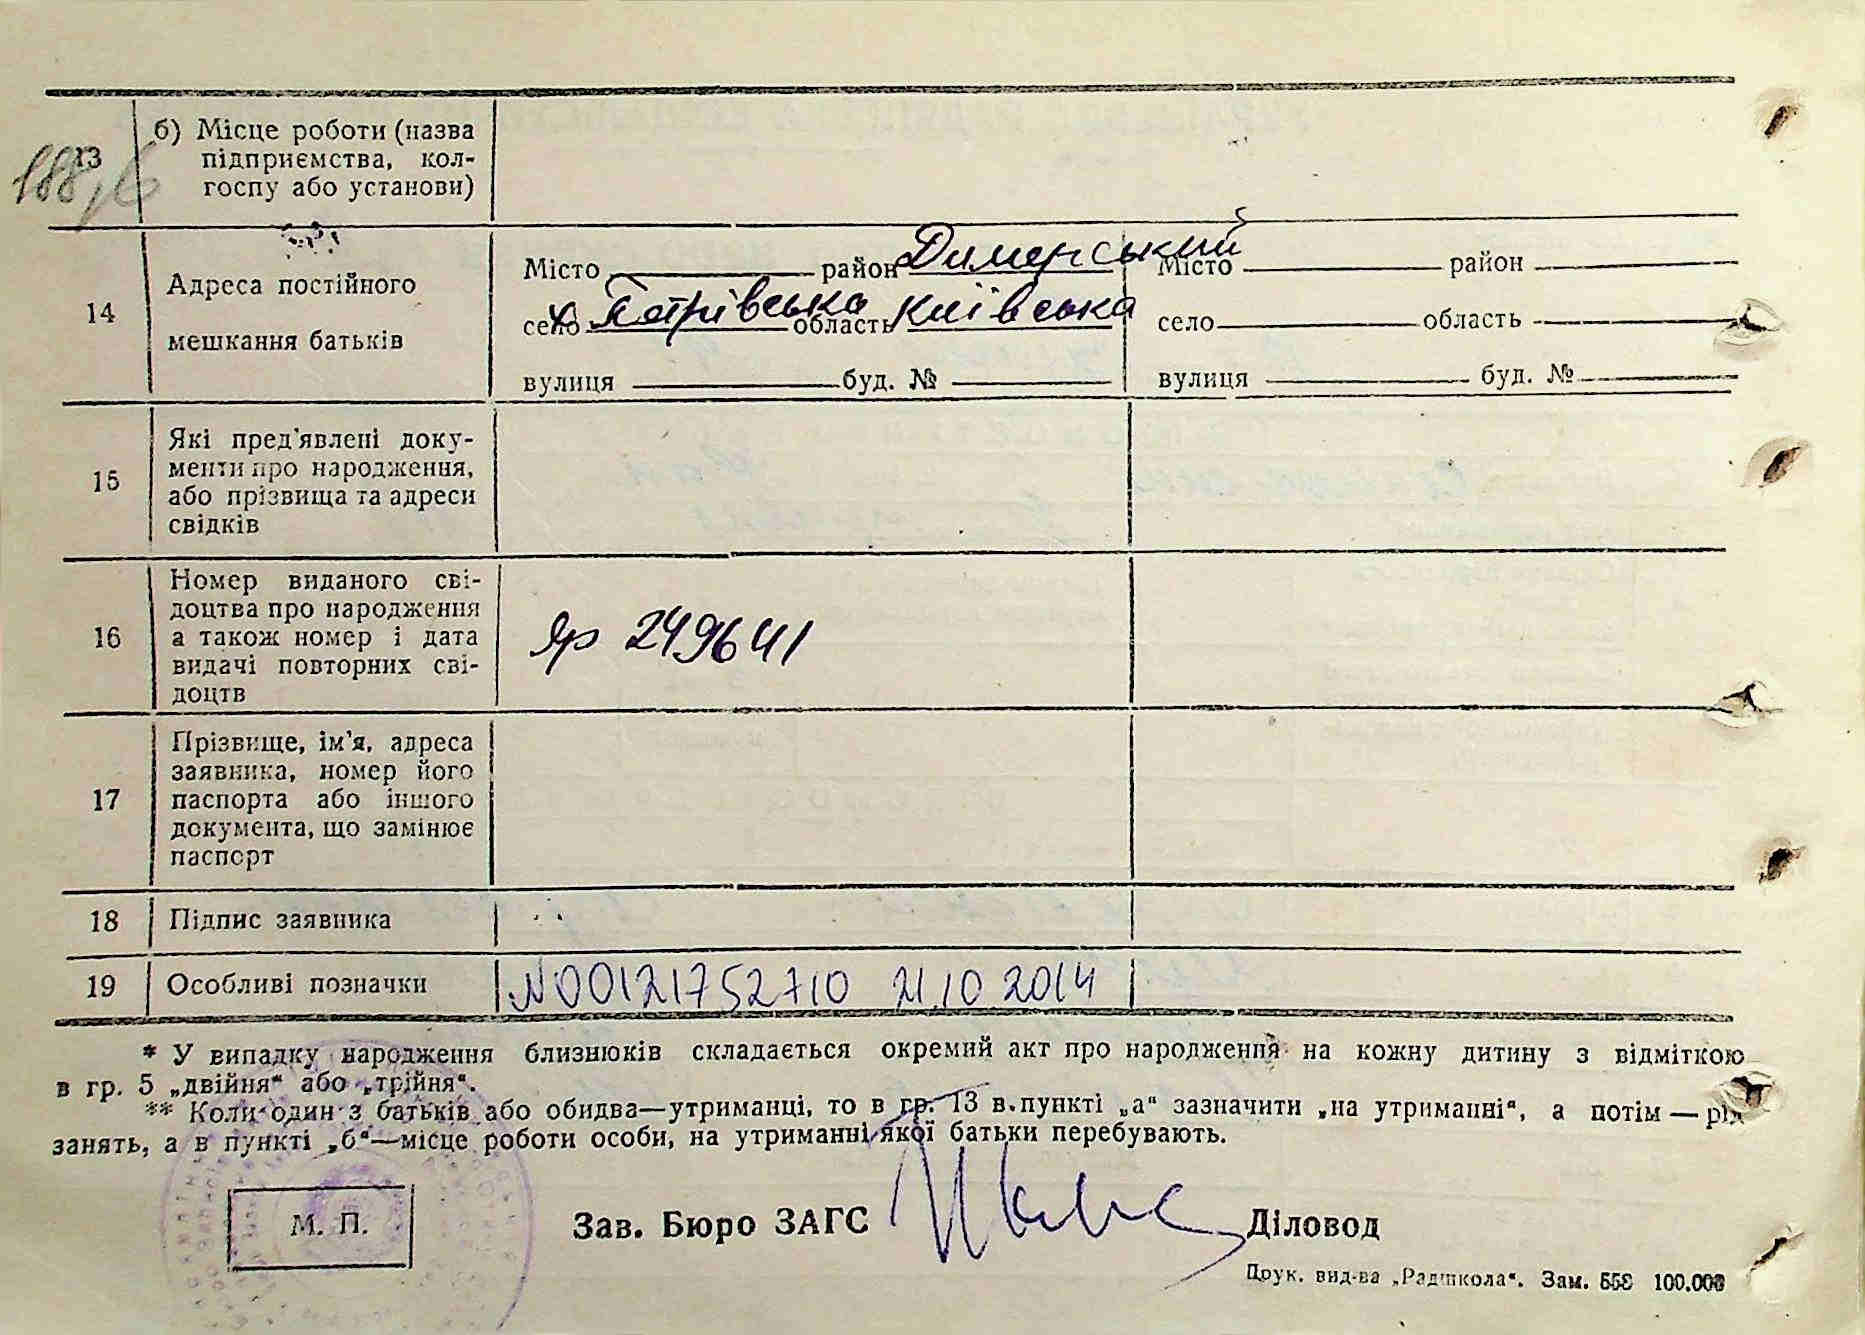 188/6
13
б) Місце роботи (назва
підприємства, кол-
госпу або установи)
14
Адреса постійного
мешкання батьків
Місто район Димерський
село х Петрівська область Київська
вулиця буд. №
Місто район
село область
вулиця буд. №
15
Які пред'явлені доку-
менти про народження,
або прізвища та адреси
свідків
16
Номер виданого сві-
доцтва про народження
а також номер і дата
видачі повторних сві-
доцтв
яр 249641
17
Прізвище, ім'я, адреса
заявника, номер його
паспорта або іншого
документа, що замінює
паспорт
18
Підпис заявника
19
Особливі позначки
N00121752710 21.10 2014
* У випадку народження близнюків складається окремий акт про народження на кожну дитину з відміткою
в гр. 5 „двійня“ або „трійня“.
** Коли один з батьків або обидва—утриманці, то в гр. 13 в пункті „а“ зазначити „на утриманні“, а потім — рід
занять, а в пункті „б“—місце роботи особи, на утриманні якої батьки перебувають.
М. П.
Зав. Бюро ЗАГС
Діловод
Друк. вид-ва „Радшкола“. Зам. 558 100.000